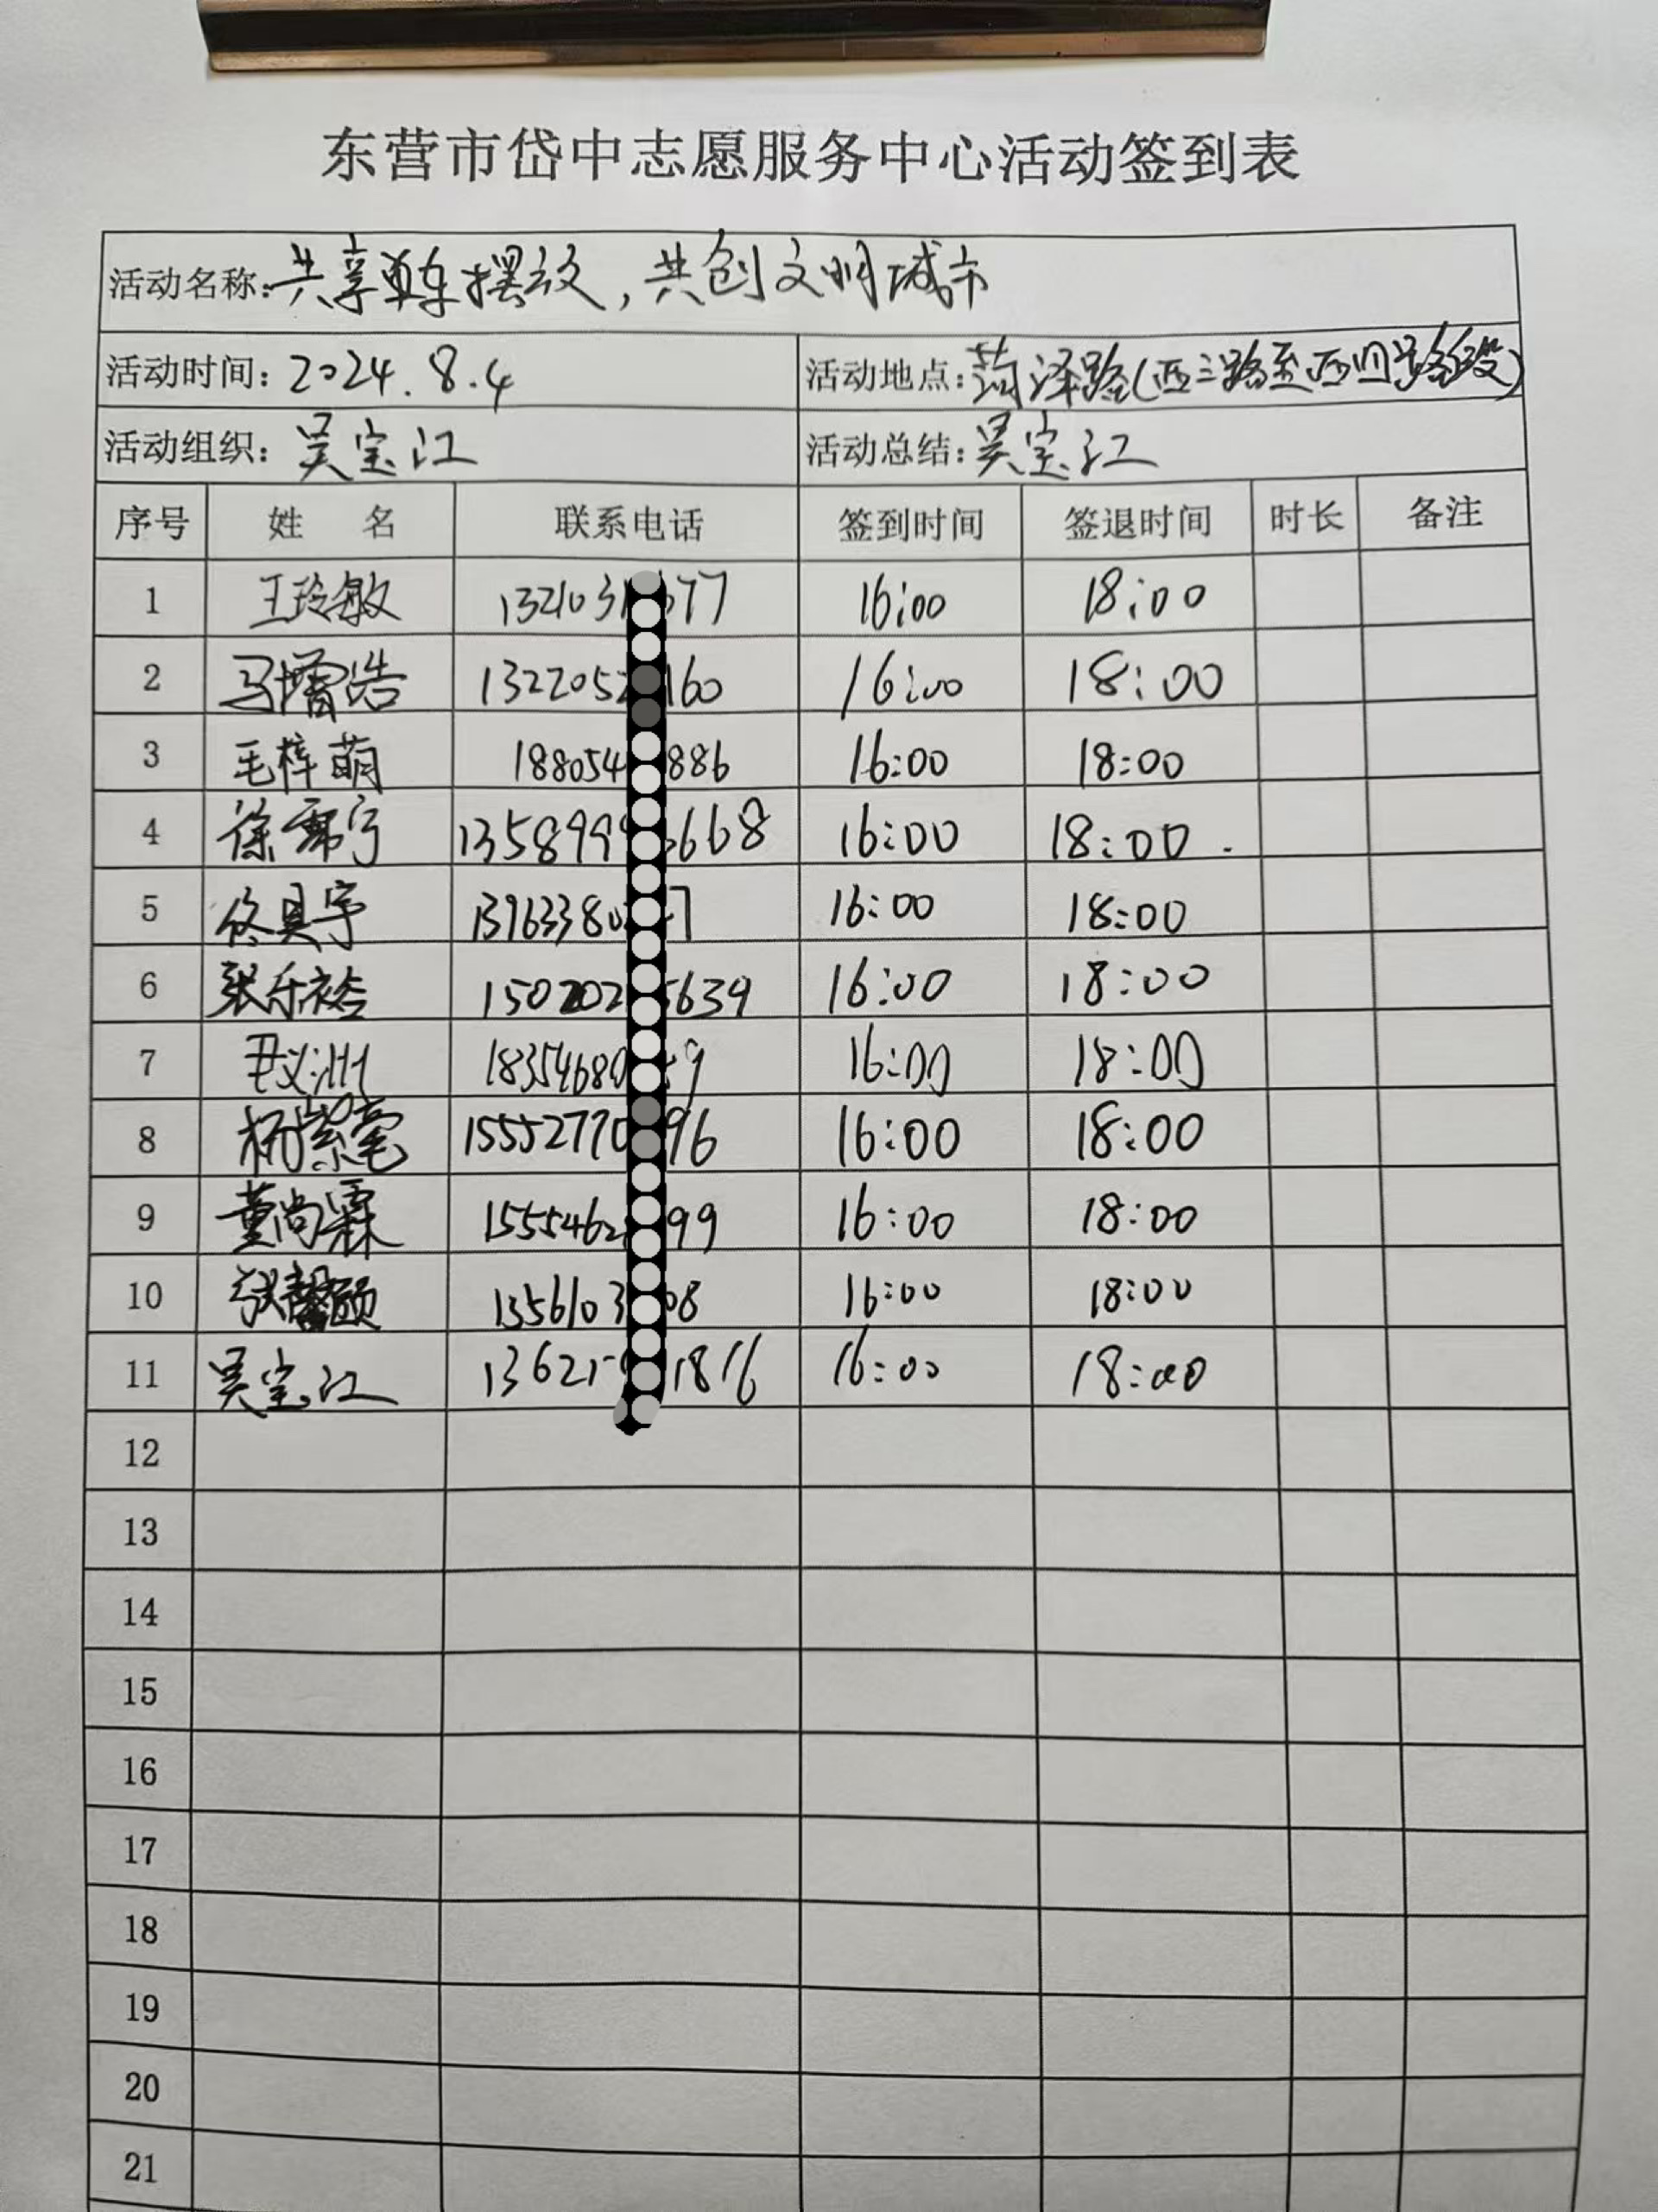 东营市岱中志愿服务中心活动签到表
活动名称:共享单车摆放,共创文明城市
活动时间:2024.8.4 活动地点:菏泽路(西三路至西四路段)
活动组织:吴宝江 活动总结:吴宝江
序号 姓 名 联系电话 签到时间 签退时间 时长 备注
1 王玲敏 1321031 77 16:00 18:00
2 马增浩 132205 160 16:00 18:00
3 毛梓萌 188054 886 16:00 18:00
4 徐霈宁 135899 668 16:00 18:00
5 佟具宇 1396338 7 16:00 18:00
6 张乐裕 150202 5639 16:00 18:00
7 尹义洲 18354680 9 16:00 18:00
8 杨紫毫 15552770 96 16:00 18:00
9 董尚霖 1555462 99 16:00 18:00
10 张馨颐 1356103 08 16:00 18:00
11 吴宝江 13621 1816 16:00 18:00
12
13
14
15
16
17
18
19
20
21